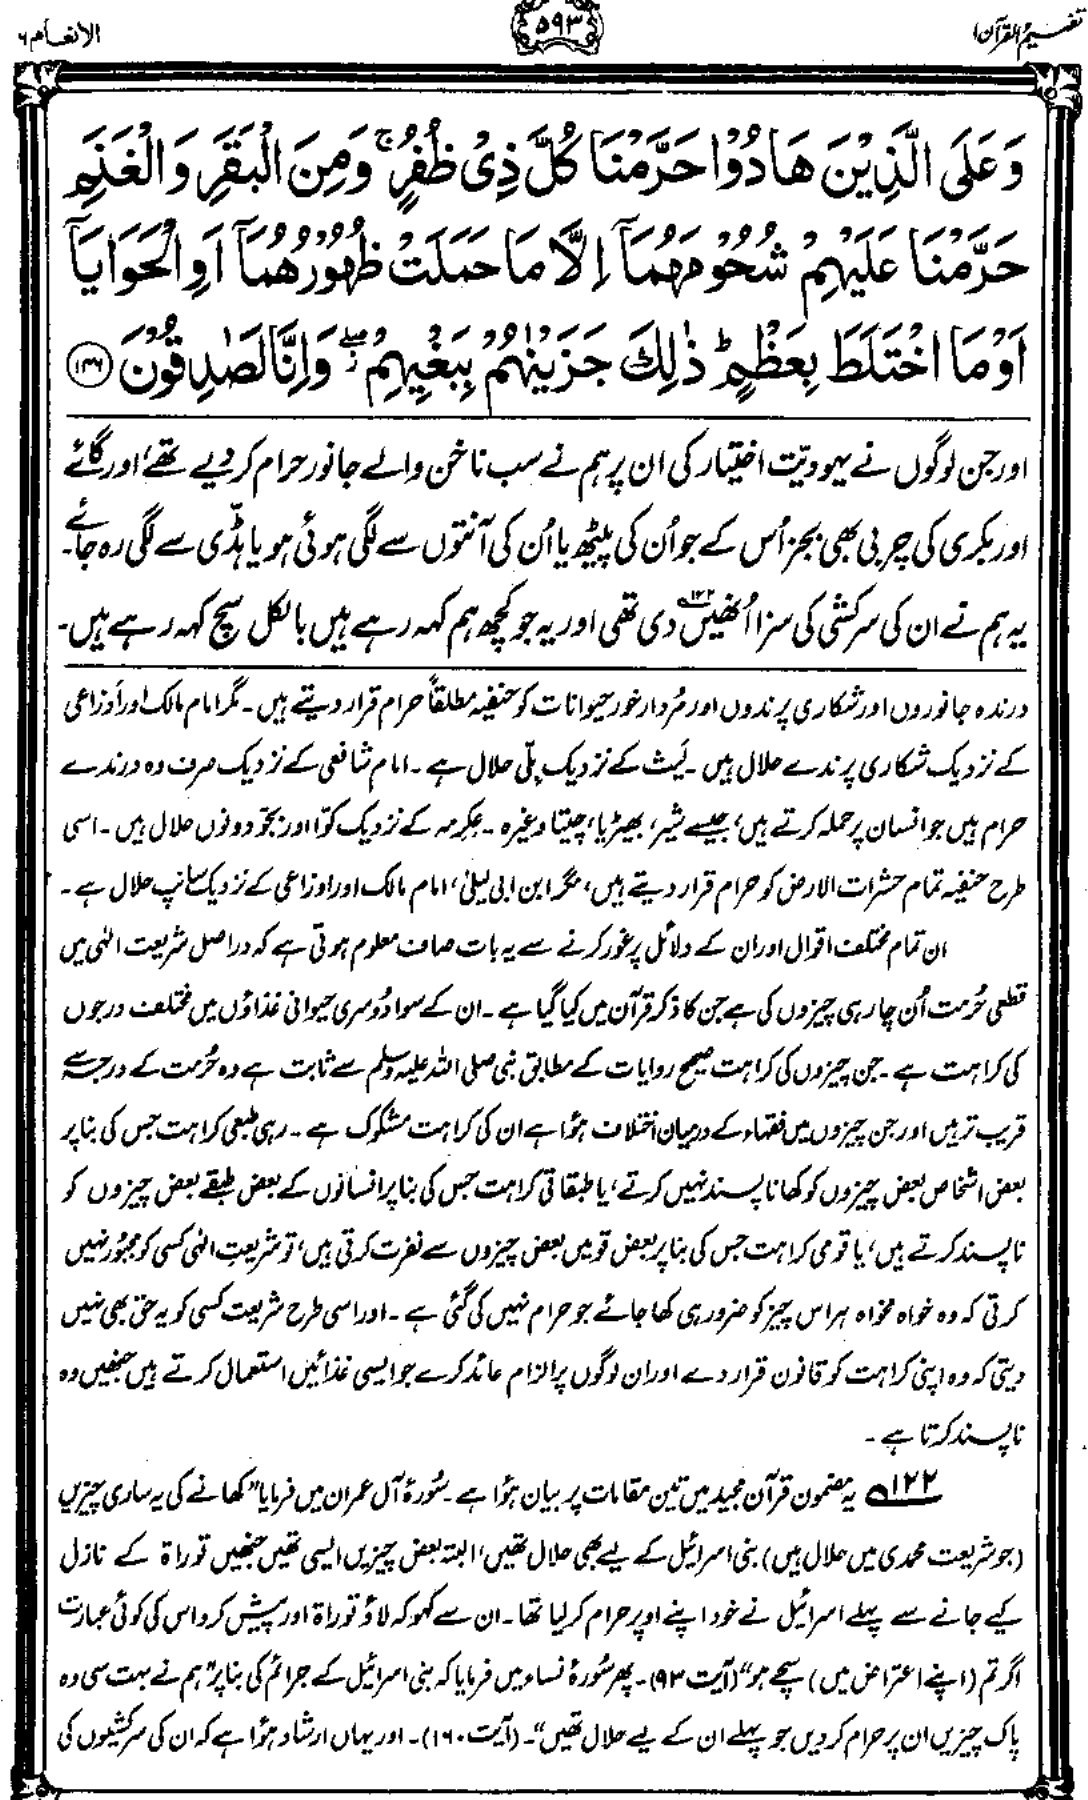 تفہیم القرآن ۱
۵۹۳
الانعام ۶
وَعَلَى الَّذِيْنَ هَادُوْا حَرَّمْنَا كُلَّ ذِيْ ظُفُرٍ ۚ وَمِنَ الْبَقَرِ وَالْغَنَمِ
حَرَّمْنَا عَلَيْهِمْ شُحُوْمَهُمَآ اِلَّا مَا حَمَلَتْ ظُهُوْرُهُمَآ اَوِ الْحَوَايَآ
اَوْ مَا اخْتَلَطَ بِعَظْمٍ ؕ ذٰلِكَ جَزَيْنٰهُمْ بِبَغْيِهِمْ ۖ وَاِنَّا لَصٰدِقُوْنَ ﴿۱۴۶﴾
اور جن لوگوں نے یہودیّت اختیار کی ان پر ہم نے سب ناخن والے جانور حرام کر دیے تھے، اور گائے
اور بکری کی چربی بھی بجز اُس کے جو اُن کی پیٹھ یا اُن کی آنتوں سے لگی ہوئی ہو یا ہڈّی سے لگی رہ جائے۔
یہ ہم نے ان کی سرکشی کی سزا اُنھیں ۱۲۲ دی تھی اور یہ جو کچھ ہم کہہ رہے ہیں بالکل سچ کہہ رہے ہیں۔
درندہ جانوروں اور شکاری پرندوں اور مُردار خور حیوانات کو حنفیہ مطلقاً حرام قرار دیتے ہیں۔ مگر امام مالک اور اَوزاعی
کے نزدیک شکاری پرندے حلال ہیں۔ لَیث کے نزدیک بلّی حلال ہے۔ امام شافعی کے نزدیک صرف وہ درندے
حرام ہیں جو انسان پر حملہ کرتے ہیں، جیسے شیر، بھیڑیا، چیتا وغیرہ۔ عکرمہ کے نزدیک کوّا اور بجّو دونوں حلال ہیں۔ اسی
طرح حنفیہ تمام حشرات الارض کو حرام قرار دیتے ہیں، مگر ابن ابی لیلیٰ، امام مالک اور اوزاعی کے نزدیک سانپ حلال ہے۔
ان تمام مختلف اقوال اور ان کے دلائل پر غور کرنے سے یہ بات صاف معلوم ہوتی ہے کہ دراصل شریعت الٰہی میں
قطعی حُرمت اُن چار ہی چیزوں کی ہے جن کا ذکر قرآن میں کیا گیا ہے۔ ان کے سوا دُوسری حیوانی غذاؤں میں مختلف درجوں
کی کراہت ہے۔ جن چیزوں کی کراہت صحیح روایات کے مطابق نبی صلی اللہ علیہ وسلم سے ثابت ہے وہ حُرمت کے درجہ سے
قریب تر ہیں اور جن چیزوں میں فقہاء کے درمیان اختلاف ہؤا ہے ان کی کراہت مشکوک ہے۔ رہی طبعی کراہت جس کی بنا پر
بعض اشخاص بعض چیزوں کو کھانا پسند نہیں کرتے، یا طبقاتی کراہت جس کی بنا پر انسانوں کے بعض طبقے بعض چیزوں کو
ناپسند کرتے ہیں، یا قومی کراہت جس کی بنا پر بعض قومیں بعض چیزوں سے نفرت کرتی ہیں، تو شریعتِ الٰہی کسی کو مجبُور نہیں
کرتی کہ وہ خواہ مخواہ ہر اس چیز کو ضرور ہی کھا جائے جو حرام نہیں کی گئی ہے۔ اور اسی طرح شریعت کسی کو یہ حق بھی نہیں
دیتی کہ وہ اپنی کراہت کو قانون قرار دے اور ان لوگوں پر الزام عائد کرے جو ایسی غذائیں استعمال کرتے ہیں جنھیں وہ
ناپسند کرتا ہے۔
۱۲۲ یہ مضمون قرآن مجید میں تین مقامات پر بیان ہؤا ہے۔ سُورۂ آل عمران میں فرمایا "کھانے کی یہ ساری چیزیں
(جو شریعت محمدی میں حلال ہیں) بنی اسرائیل کے لیے بھی حلال تھیں، البتہ بعض چیزیں ایسی تھیں جنھیں توراۃ کے نازل
کیے جانے سے پہلے اسرائیل نے خود اپنے اوپر حرام کر لیا تھا۔ ان سے کہو کہ لاؤ توراۃ اور پیش کرو اس کی کوئی عبارت
اگر تم (اپنے اعتراض میں) سچے ہو" (آیت ۹۳)۔ پھر سُورۂ نساء میں فرمایا کہ بنی اسرائیل کے جرائم کی بنا پر "ہم نے بہت سی وہ
پاک چیزیں ان پر حرام کر دیں جو پہلے ان کے لیے حلال تھیں"۔ (آیت ۱۶۰)۔ اور یہاں ارشاد ہؤا ہے کہ ان کی سرکشیوں کی